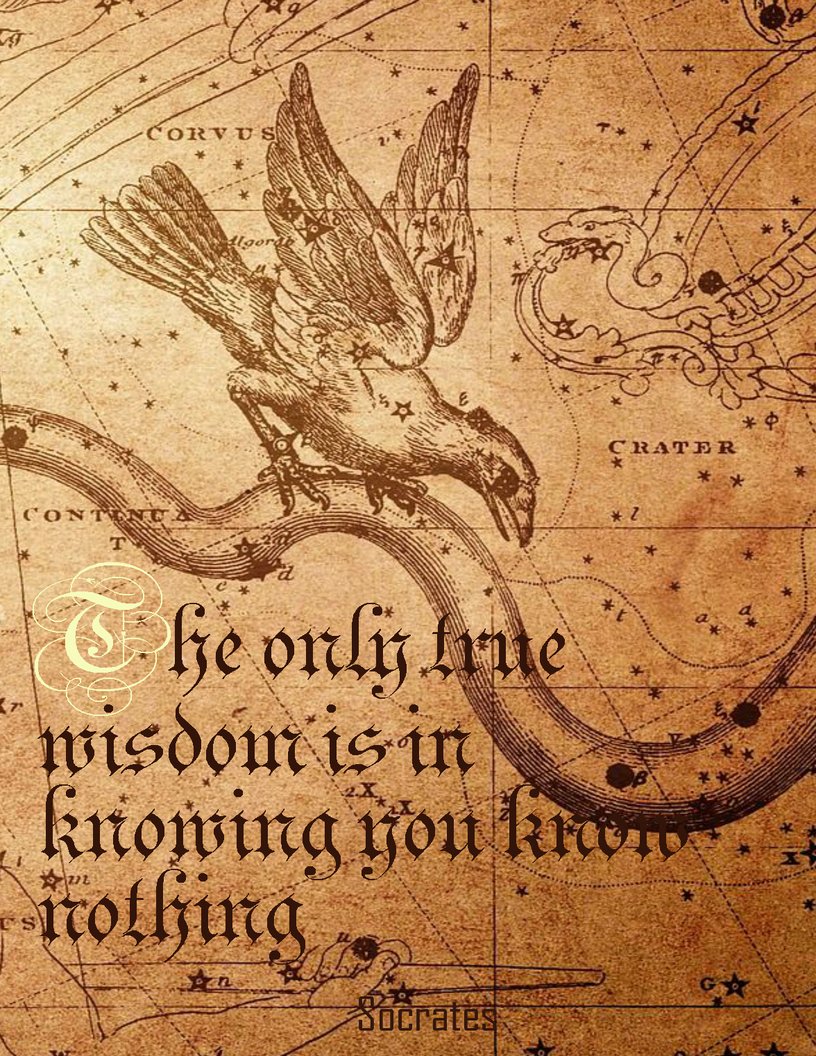 CORVUS
Algorab
CRATER
CONTINUA
The only true
wisdom is in
knowing you know
nothing
Socrates